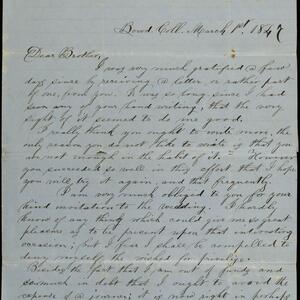 Bowd Coll. March 1st, 1847
Dear Brother,
I was very much gratified a few
days since by receiving a letter, or rather part
of one, from you. It was so long since I had
seen any of your hand writing, that the very
sight of it seemed to do me good.
I really think you ought to write more, the
only reason you do not like to write is that you
are not enough in the habit of it. However
you succeeded so well in this effort that I hope
you will try it again, and that frequently.
I am very much obliged to you for your
kind invitation to the wedding. I hardly
know of any thing which could give me so great
pleasure as to be present upon that interesting
occasion; but I fear I shall be compelled to
deny myself the wished for privilege.
Besides the fact that I am out of funds, and
so much in debt that I ought to avoid the
expense of a journey, it is now right in